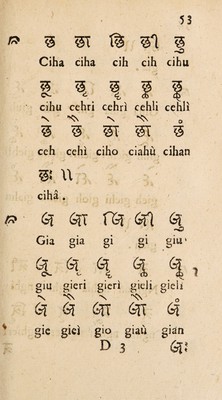 53
छ छा छि छी छु
Ciha ciha cih cih cihu
छू छृ छॄ छॢ छॣ
cihu cehri cehrì cehli cehlì
छे छै छो छौ छं
ceh cehì ciho ciahù cihan
छः ॥
cihâ .
ज जा जि जी जु
Gia gia gi gi giu
जू जृ जॄ जॢ जॣ
giu gieri gierì gieli gielì
जे जै जो जौ जं
gie gieì gio giaù gian
D 3 जः